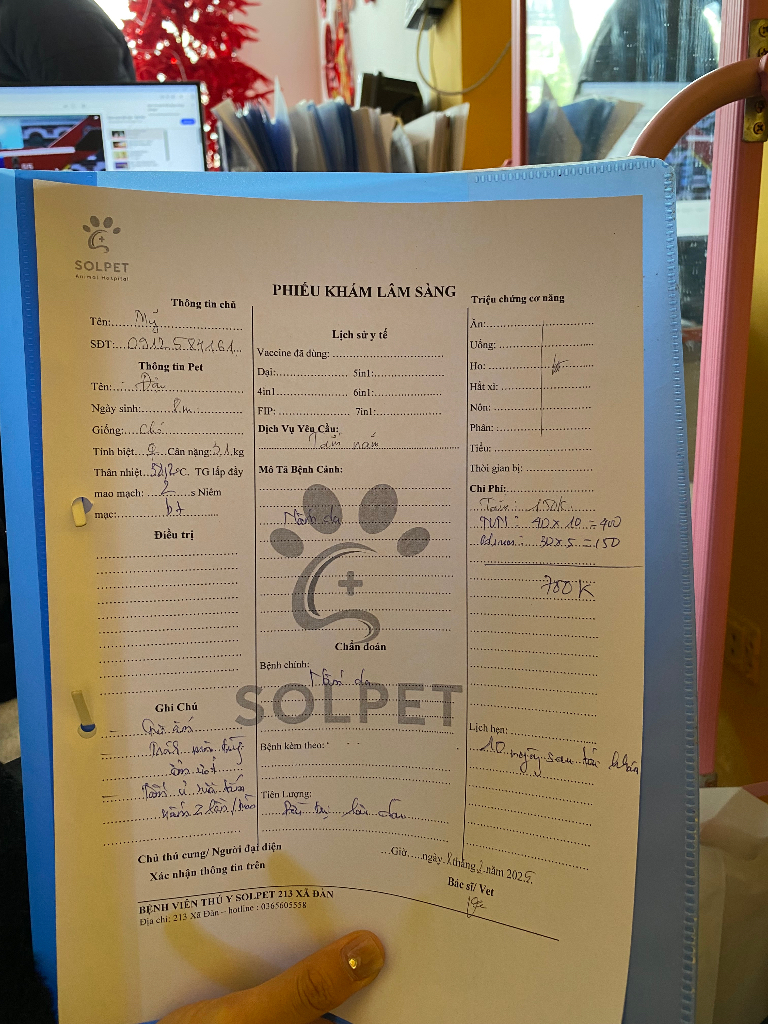 SOLPET
Animal Hospital
PHIẾU KHÁM LÂM SÀNG
Thông tin chủ
Tên: Mỹ
SĐT: 0912584161
Thông tin Pet
Tên: Đậu
Ngày sinh: 8m
Giống: Chó
Tính biệt Cân nặng: 3,1 kg
Thân nhiệt °C. TG lấp đầy
mao mạch: 2 s Niêm
mạc: bt
Điều trị
Ghi Chú
2 lần/
Lịch sử y tế
Vaccine đã dùng:
Dại: 5in1:
4in1 6in1:
FIP: 7in1:
Dịch Vụ Yêu Cầu:
Tắm nấm
Mô Tả Bệnh Cảnh:
Nấm da
SOLPET
Chẩn đoán
Bệnh chính:
Nấm da
Bệnh kèm theo:
Tiên Lượng:
Điều trị lâu dài
Triệu chứng cơ năng
Ăn:
Uống:
Ho: bt
Hắt xì:
Nôn:
Phân:
Tiểu:
Thời gian bị:
Chi Phí:
Tắm: 150K
40 x 10 = 400
30 x 5 = 150
700K
Lịch hẹn:
10 ngày sau tái khám
Chủ thú cưng/ Người đại diện
Xác nhận thông tin trên
...Giờ.....ngày tháng 2 năm 2025.
Bác sĩ/ Vet
BỆNH VIỆN THÚ Y SOLPET 213 XÃ ĐÀN
Địa chỉ: 213 Xã Đàn – hotline : 0365605558